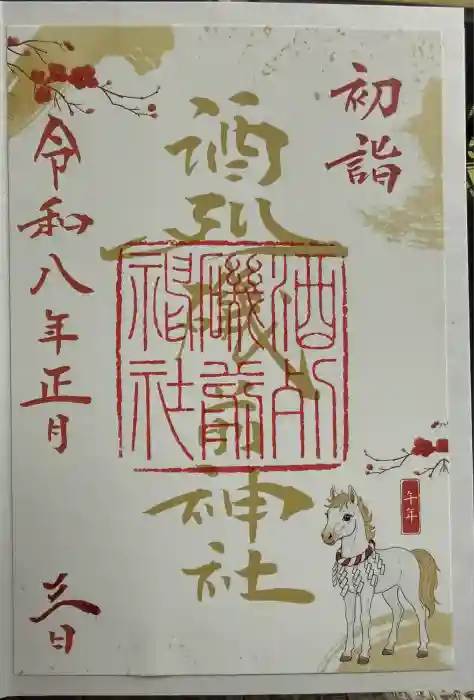 初詣
酒列磯前神社
酒列磯前神社
令和八年正月
三日
午年